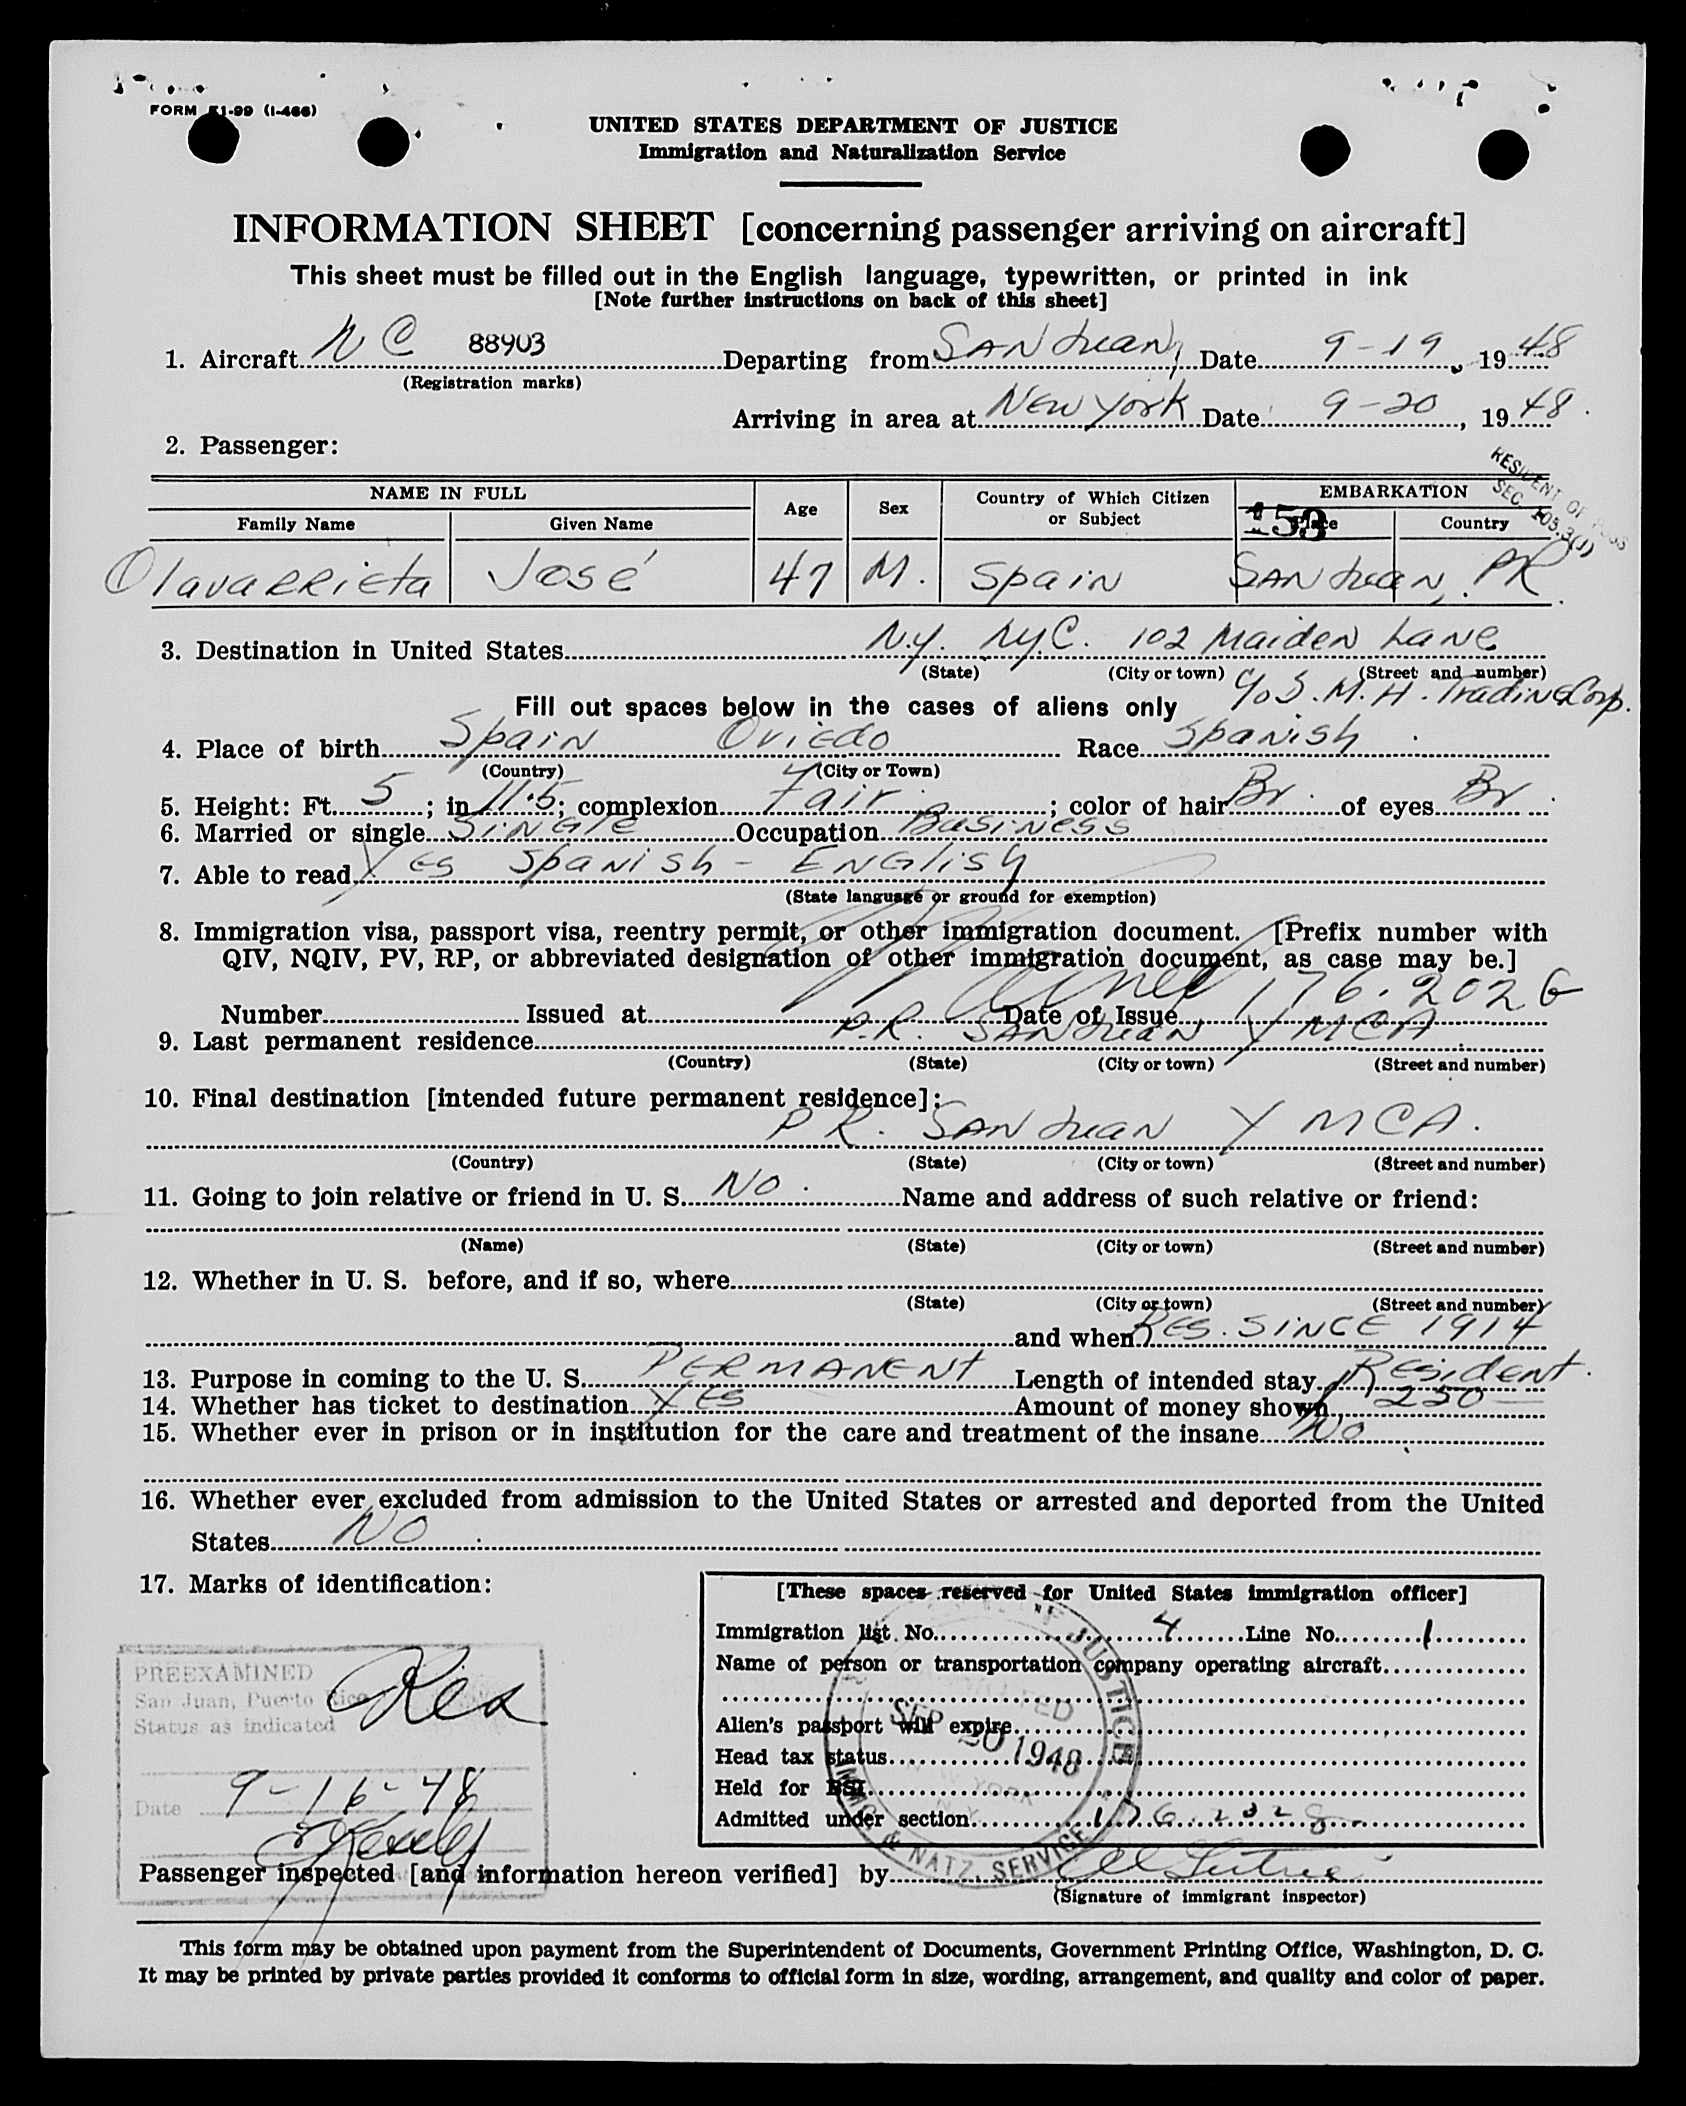 FORM I-99 (I-466)
UNITED STATES DEPARTMENT OF JUSTICE
Immigration and Naturalization Service
INFORMATION SHEET [concerning passenger arriving on aircraft]
This sheet must be filled out in the English language, typewritten, or printed in ink
[Note further instructions on back of this sheet]
1. Aircraft NC 88903 Departing from San Juan, Date 9-19, 1948
(Registration marks)
Arriving in area at New York Date 9-20, 1948.
2. Passenger:
RESIDENT OF
SEC. 105.3(J)
NAME IN FULL Age Sex Country of Which Citizen or Subject EMBARKATION
Family Name Given Name 153 Place Country
Olavarrieta José 47 M. Spain San Juan, PR.
3. Destination in United States N.Y. N.Y.C. 102 Maiden Lane
(State) (City or town) (Street and number)
c/o S.M.H. Trading Corp.
Fill out spaces below in the cases of aliens only
4. Place of birth Spain Oviedo Race Spanish
(Country) (City or Town)
5. Height: Ft. 5; in 11.5; complexion Fair; color of hair Br. of eyes Br.
6. Married or single Single Occupation Business
7. Able to read Yes Spanish - English
(State language or ground for exemption)
8. Immigration visa, passport visa, reentry permit, or other immigration document. [Prefix number with
QIV, NQIV, PV, RP, or abbreviated designation of other immigration document, as case may be.]
176.202 G
Number Issued at Date of Issue
9. Last permanent residence P.R. San Juan YMCA
(Country) (State) (City or town) (Street and number)
10. Final destination [intended future permanent residence]:
PR. San Juan YMCA.
(Country) (State) (City or town) (Street and number)
11. Going to join relative or friend in U. S. No. Name and address of such relative or friend:
(Name) (State) (City or town) (Street and number)
12. Whether in U. S. before, and if so, where
(State) (City or town) (Street and number)
and when? Res. Since 1914
13. Purpose in coming to the U. S. Permanent Length of intended stay Resident.
14. Whether has ticket to destination Yes Amount of money shown 250
15. Whether ever in prison or in institution for the care and treatment of the insane No
16. Whether ever excluded from admission to the United States or arrested and deported from the United
States No
17. Marks of identification:
PREEXAMINED
San Juan, Puerto Rico
Status as indicated Res
Date 9-16-48
[These spaces reserved for United States immigration officer]
Immigration list No. 4 Line No. 1
Name of person or transportation company operating aircraft
Alien's passport will expire
Head tax status
Held for BSI
Admitted under section 176.202 g
OF JUSTICE
SEP 20 1948
NEW YORK
N.Y.
IMMG. & NATZ. SERVICE
Passenger inspected [and information hereon verified] by
(Signature of immigrant inspector)
This form may be obtained upon payment from the Superintendent of Documents, Government Printing Office, Washington, D. C.
It may be printed by private parties provided it conforms to official form in size, wording, arrangement, and quality and color of paper.